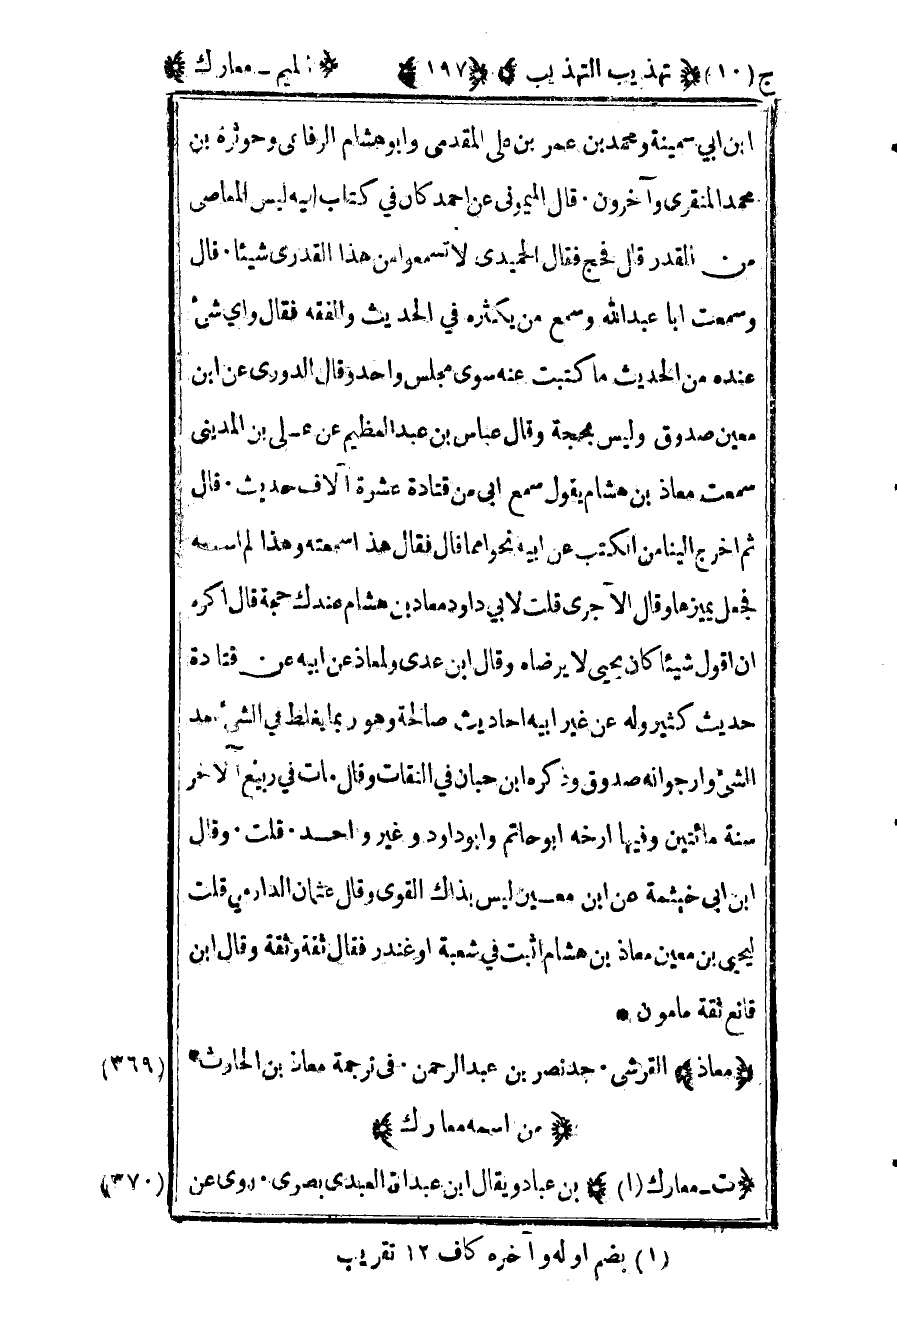 ج (١٠) ﴿ تهذيب التهذيب ﴾ ﴿ ١٩٧ ﴾ ﴿ الميم ـ معارك ﴾
ابن ابي سمينة ومحمد بن عمر بن على المقدمى وابو هشام الرفاعى وحوثرة بن
محمد المنقرى وآخرون · قال الميمونى عن احمد كان في كتاب ابيه ليس المعاصى
من القدر قال فحج فقال الحميدى لا تسمعوا من هذا القدرى شيئا · قال
وسمعت ابا عبدالله وسمع من يكثره في الحديث والفقه فقال واي شئ
عنده من الحديث ما كتبت عنه سوى مجلس واحد وقال الدورى عن ابن
معين صدوق وليس بحجة وقال عباس بن عبد العظيم عن عـلى بن المدينى
سمعت معاذ بن هشام يقول سمع ابى من قتادة عشرة آلاف حديث · قال
ثم اخرج الينا من الكتب عن ابيه نحوا مما قال فقال هذا سمعته وهذا لم اسمعه
فجعل يميزها وقال الآجرى قلت لابي داود معاذ بن هشام عندك حجة قال اكره
ان اقول شيئا كان يحيى لا يرضاه وقال ابن عدى ولمعاذ عن ابيه عن قتادة
حديث كثير وله عن غير ابيه احاديث صالحة وهو ربما يغلط في الشئ بعد
الشئ وارجو انه صدوق وذكره ابن حبان في الثقات وقال مات في ربيع الآخر
سنة مائتين وفيها ارخه ابو حاتم وابوداود وغير واحـد · قلت · وقال
ابن ابى خيثمة عن ابن معـين ليس بذاك القوى وقال عثمان الدارمي قلت
ليحيى بن معين معاذ بن هشام اثبت في شعبة او غندر فقال ثقة وثقة وقال ابن
قانع ثقة مامون *
﴿ معاذ ﴾ القرشى · جد نصر بن عبد الرحمن · فى ترجمة معاذ بن الحارث * (٣٦٩)
﴿ من اسمه معارك ﴾
﴿ ت ـ معارك (١) ﴾ بن عباد ويقال ابن عبدالله العبدى بصرى · روى عن (٣٧٠)
(١) بضم اوله وآخره كاف ١٢ تقريب